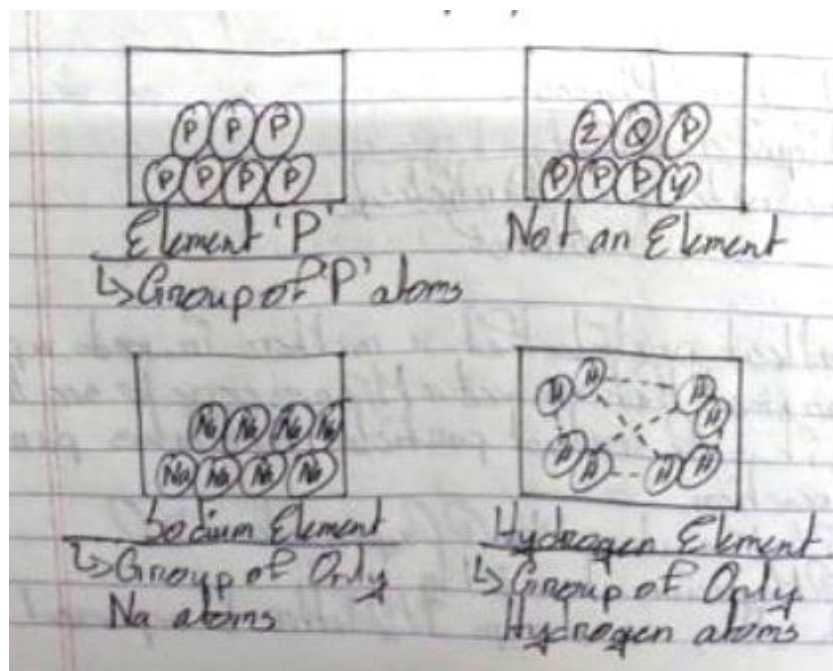 P P P
P P P P
Element 'P'
↳ Group of 'P' atoms
Z Q P
P P P Y
Not an Element
Na Na Na Na
Na Na Na Na
Sodium Element
↳ Group of Only
Na atoms
H H H H
H H H H
Hydrogen Element
↳ Group of Only
Hydrogen atoms